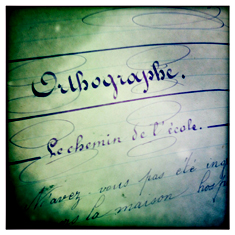 Orthographe.
Le chemin de l'école.
N'avez-vous pas été
la maison